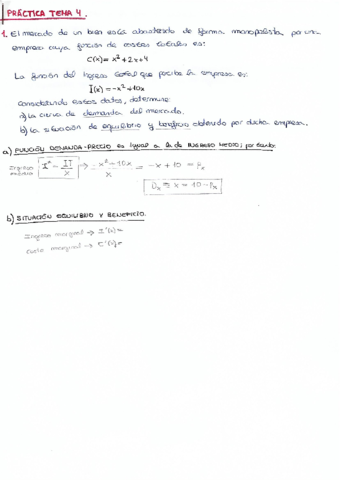 PRÁCTICA TEMA 4.
1. El mercado de un bien está abastecido de forma monopolista por una
empresa cuya función de costes totales es:
C(x) = x² + 2x + 4
La función del ingreso total que percibe la empresa es:
I(x) = -x² + 10x
Considerando estos datos, determine:
a) La curva de demanda del mercado.
b) La situación de equilibrio y beneficio obtenido por dicha empresa.
a) FUNCIÓN DEMANDA-PRECIO es igual a la de INGRESO MEDIO; por tanto:
Ingreso medio I* = IT/x → -x² + 10x / x = -x + 10 = Px
x = 10 - Px
b) SITUACIÓN EQUILIBRIO Y BENEFICIO.
Ingreso marginal → I'(x) =
Coste marginal → C'(x) =